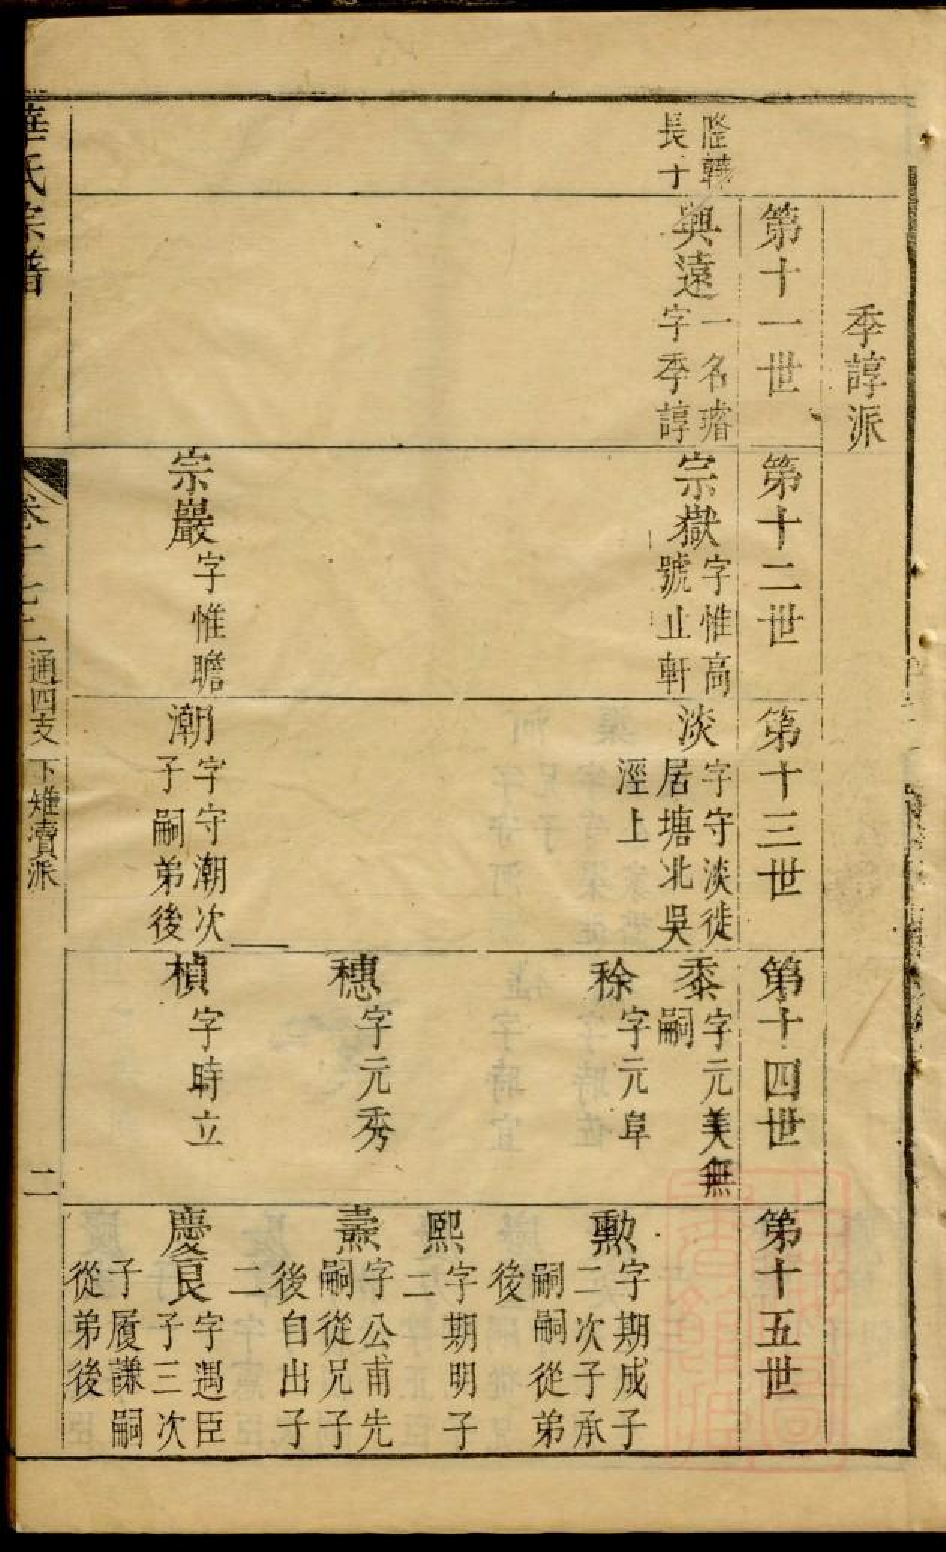 季諄派
第十一世
第十二世
第十三世
第十四世
第十五世
隆韡
長子
與遠
一名瑹
字季諄
宗嶽
字惟高
號止軒
淡
字守淡徙
居塘北吳
涇上
黍
字元美無
嗣
稌
字元阜
勲
字期成子
二次子承
嗣嗣從弟
後
熙
字期明子
二
穗
字元秀
燾
字公甫先
嗣從兄子
後自出子
二
宗巖
字惟瞻
潮
字守潮次
子嗣弟後
楨
字時立
慶良
字遇臣
子三次
子履謙嗣
從弟後
華氏宗譜
卷十七二
通四支
下雉瀆派
二